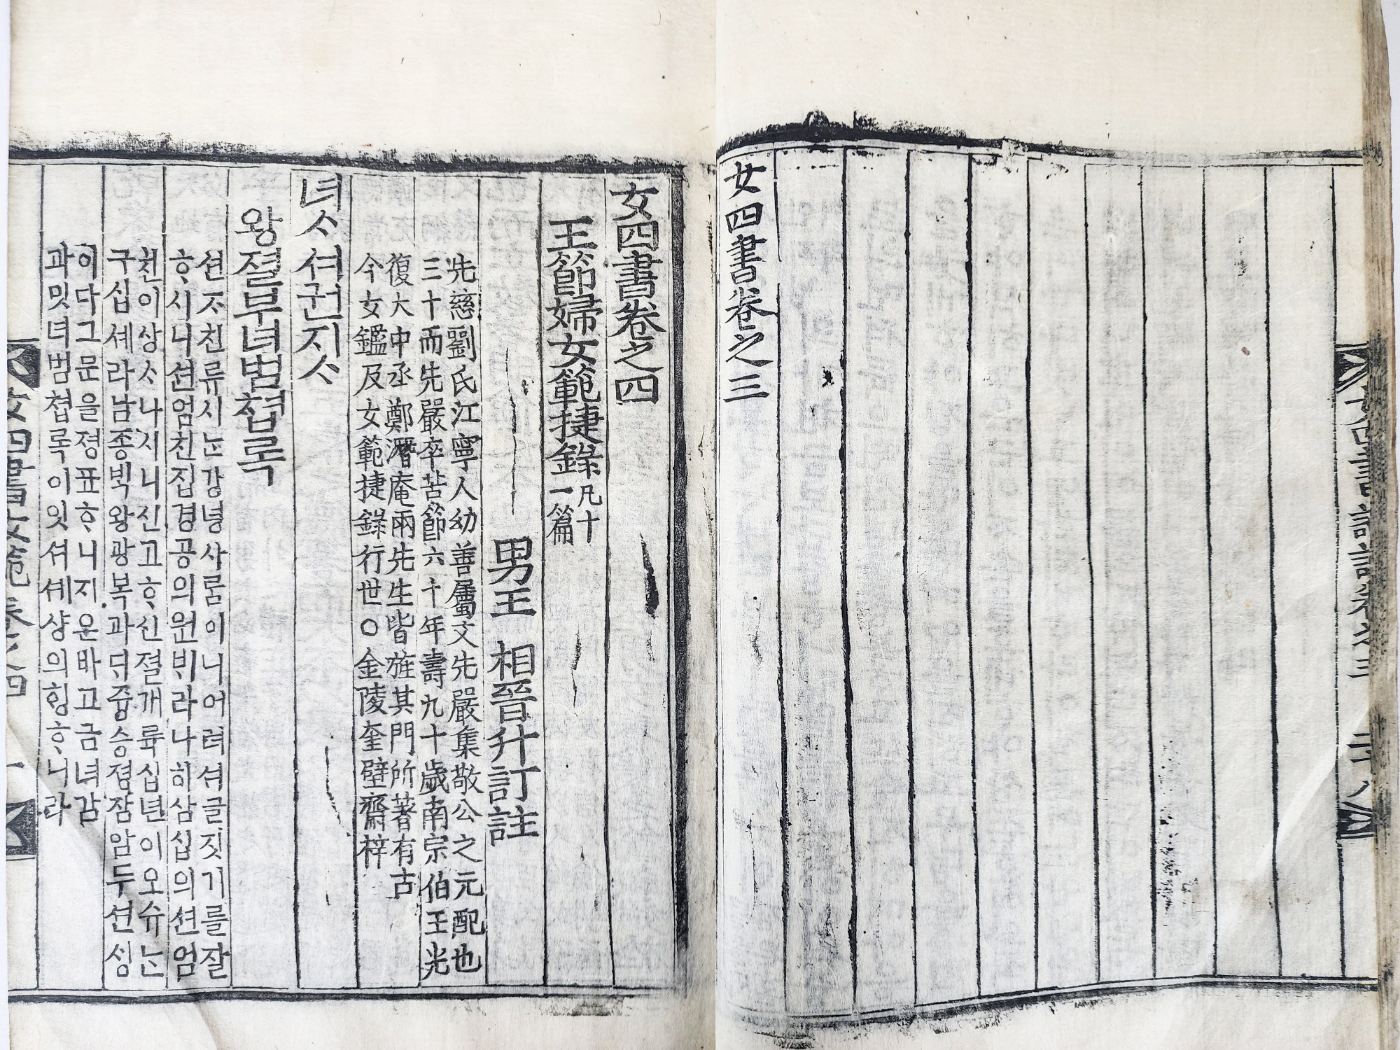 女四書卷之三
女四書卷之四
王節婦女範捷錄 凡十一篇
男王 相晉升訂註
先慈劉氏江寧人幼善屬文先嚴集敬公之元配也
三十而先嚴卒苦節六十年壽九十歲南宗伯王光
復大中丞鄭潛庵兩先生皆旌其門所著有古
今女鑑及女範捷錄行世○金陵奎壁齋梓
녀ᄉᆞ셔권지ᄉᆞ
왕졀부녀범쳡록
션ᄌᆞ친류시ᄂᆞᆫ강녕사ᄅᆞᆷ이니어려셔글짓기ᄅᆞᆯ잘
ᄒᆞ시니션엄친집경공의원ᄇᆡ라나히삼십의션엄
친이상ᄉᆞ나시니진고ᄒᆞᆫ신졀개륙십년이오슈ᄂᆞᆫ
구십셰라남종ᄇᆡᆨ왕광복과ᄃᆡ즁승졍잠암두션ᄉᆡᆼ
이다그문을졍표ᄒᆞ니지은바고금녀감
과밋녀범쳡록이잇셔셰샹의ᄒᆡᆼᄒᆞ니라
女四書女範卷之四 一